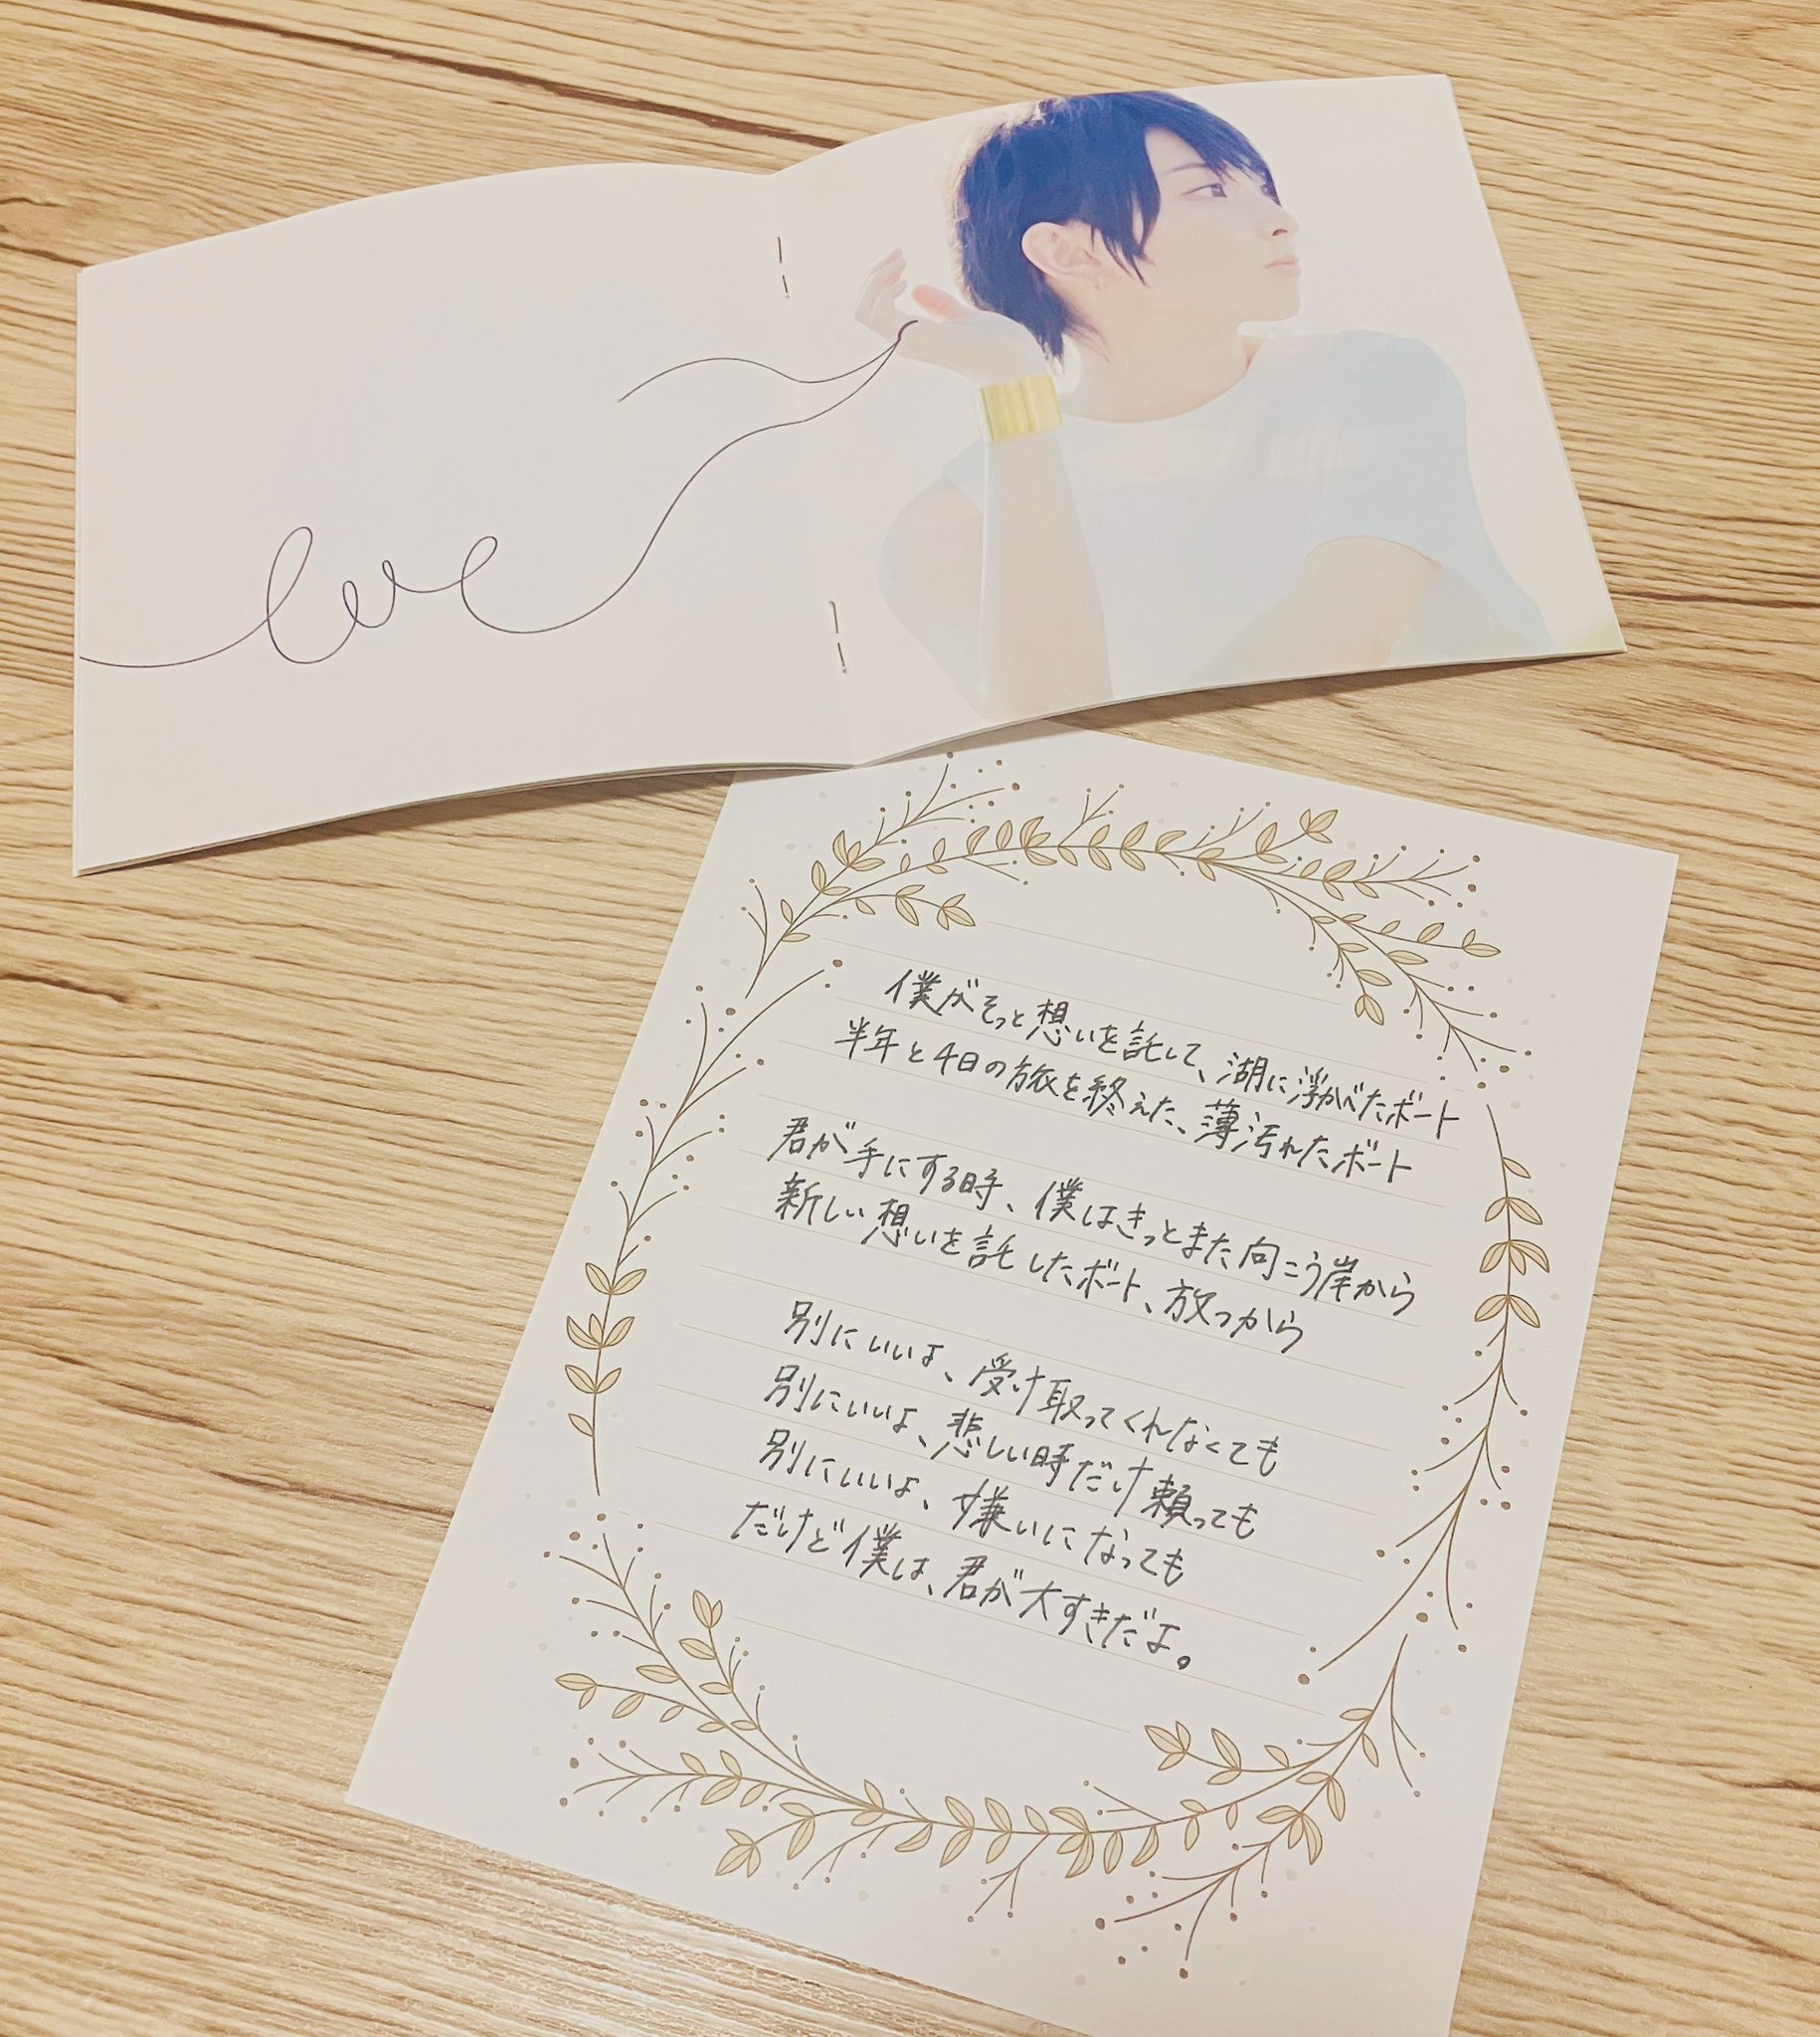 love
僕がそっと想いを託して、湖に浮かべたボート
半年と4日の旅を終えた、薄汚れたボート
君が手にする時、僕はきっとまた向こう岸から
新しい想いを託したボート、放つから
別にいいよ、受け取ってくれなくても
別にいいよ、悲しい時だけ頼っても
別にいいよ、嫌いになっても
だけど僕は、君が大すきだよ。